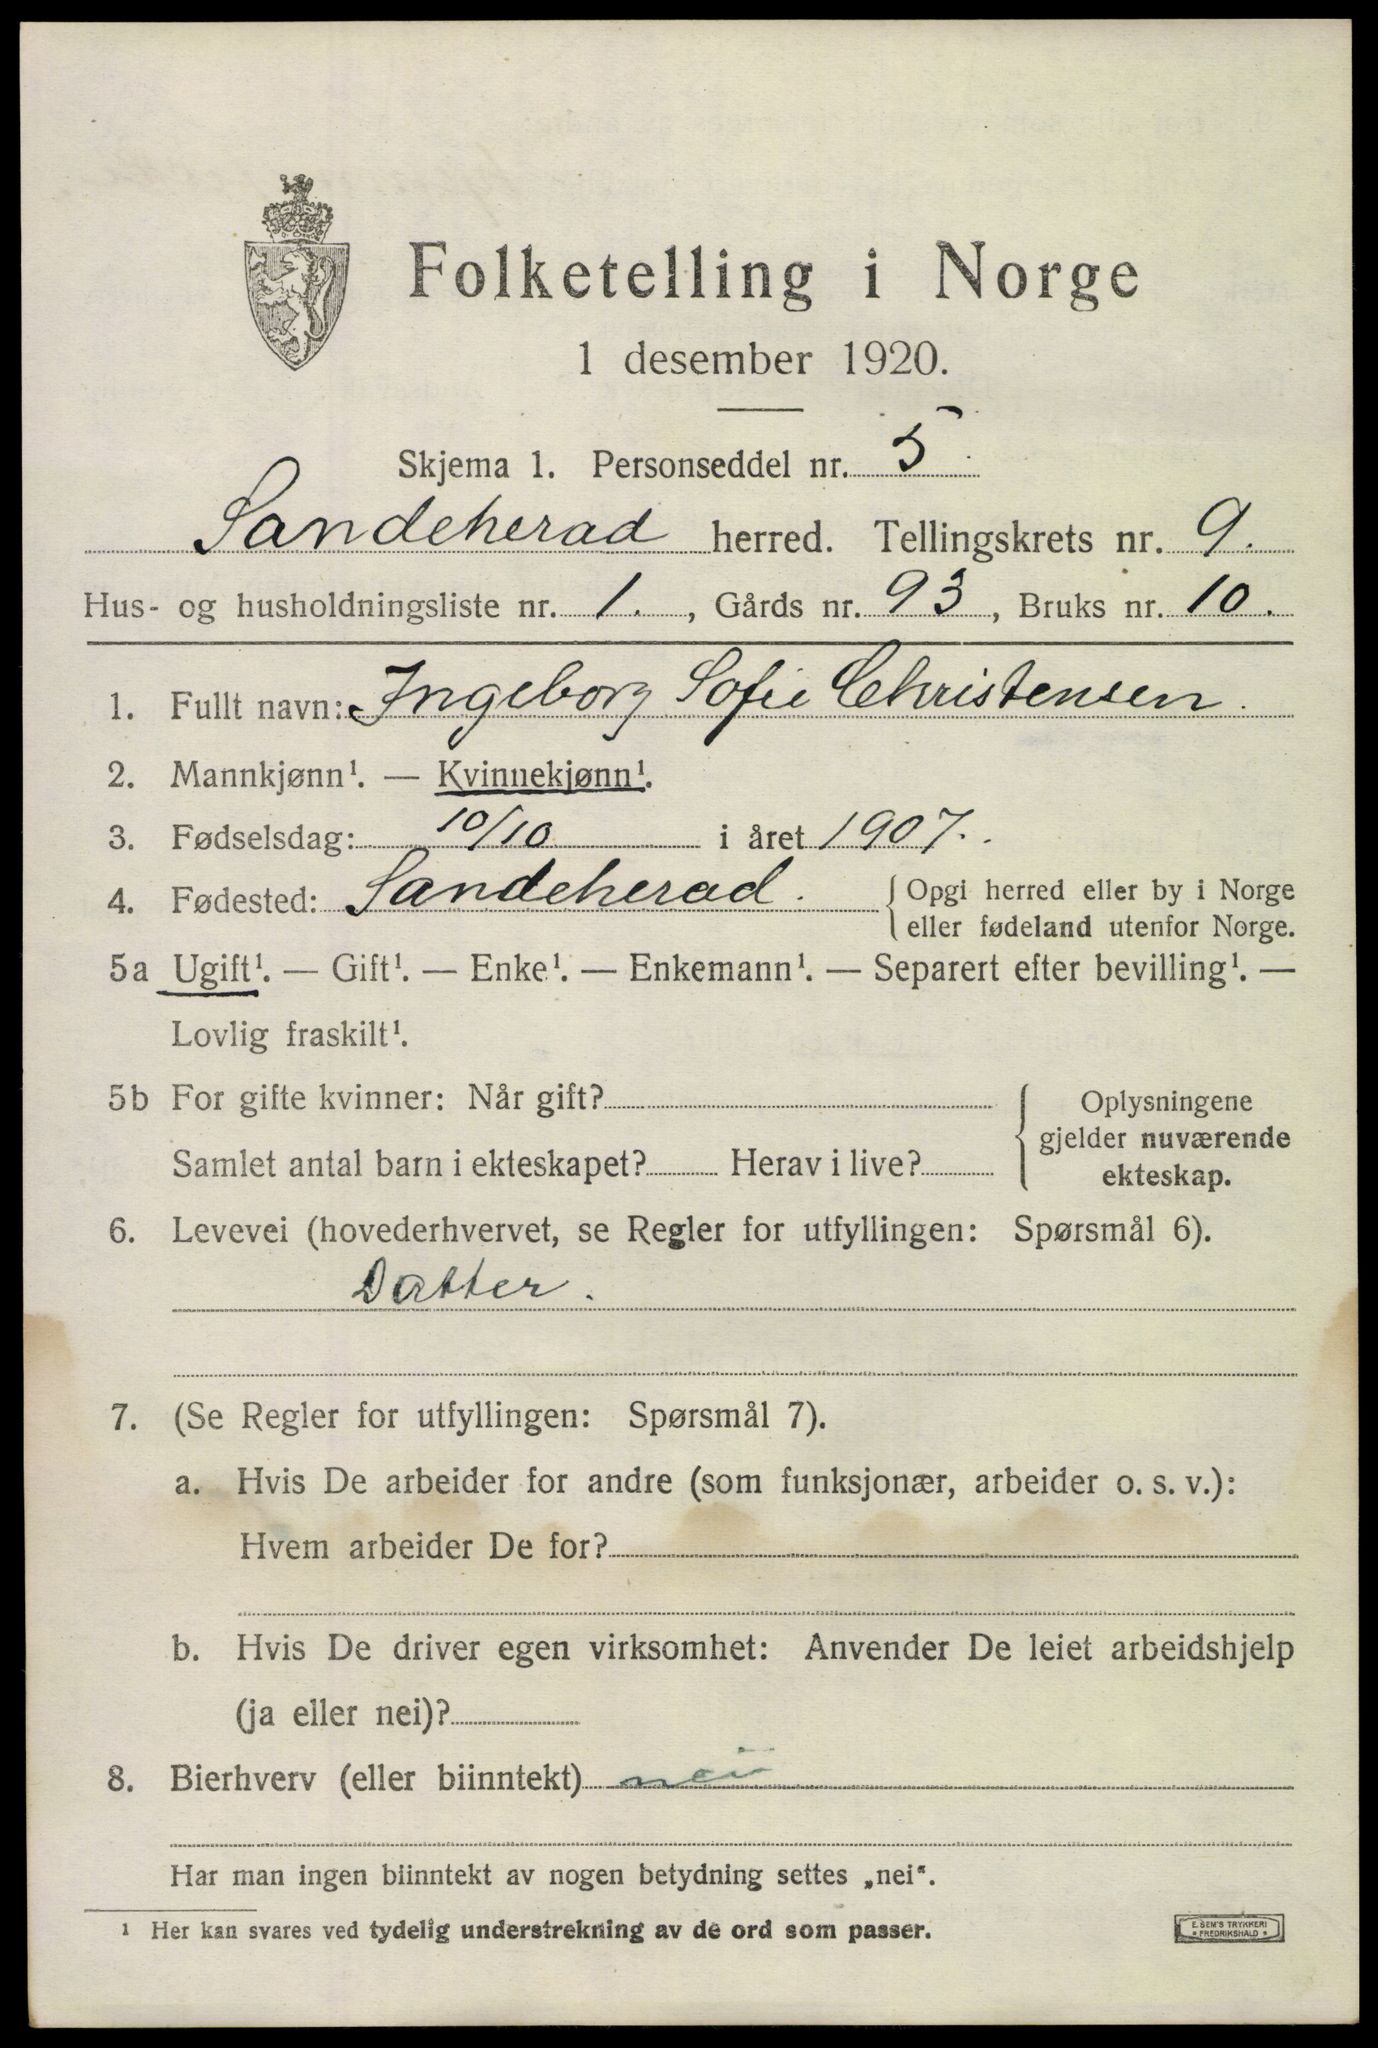 Folketelling i Norge
1 desember 1920.
Skjema 1. Personseddel nr. 5
Sandeherad herred. Tellingskrets nr. 9.
Hus- og husholdningsliste nr. 1., Gårds nr. 93, Bruks nr. 10.
1. Fullt navn: Ingeborg Sofie Christensen.
2. Mannkjønn¹. — Kvinnekjønn¹.
3. Fødselsdag: 10/10 i året 1907.
4. Fødested: Sandeherad. { Opgi herred eller by i Norge
eller fødeland utenfor Norge.
5a Ugift¹. — Gift¹. — Enke¹. — Enkemann¹. — Separert efter bevilling¹. —
Lovlig fraskilt¹.
5b For gifte kvinner: Når gift? { Oplysningene
gjelder nuværende
Samlet antal barn i ekteskapet? Herav i live?
ekteskap.
6. Levevei (hovederhvervet, se Regler for utfyllingen: Spørsmål 6).
Datter.
7. (Se Regler for utfyllingen: Spørsmål 7).
a. Hvis De arbeider for andre (som funksjonær, arbeider o. s. v.):
Hvem arbeider De for?
b. Hvis De driver egen virksomhet: Anvender De leiet arbeidshjelp
(ja eller nei)?
8. Bierhverv (eller biinntekt) nei
Har man ingen biinntekt av nogen betydning settes „nei“.
¹ Her kan svares ved tydelig understrekning av de ord som passer.
E. SEM'S TRYKKERI
* FREDRIKSHALD *